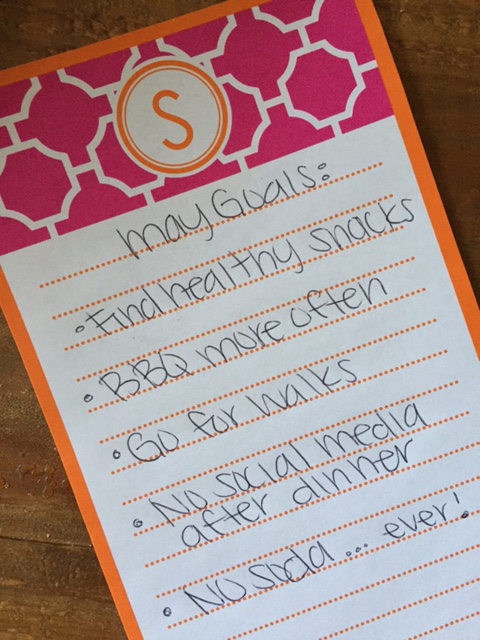 S
May Goals:
• Find healthy snacks
• BBQ more often
• Go for walks
• No social media
after dinner
• No soda... ever!